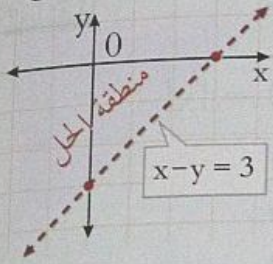 y
0
x
منطقة الحل
x−y = 3